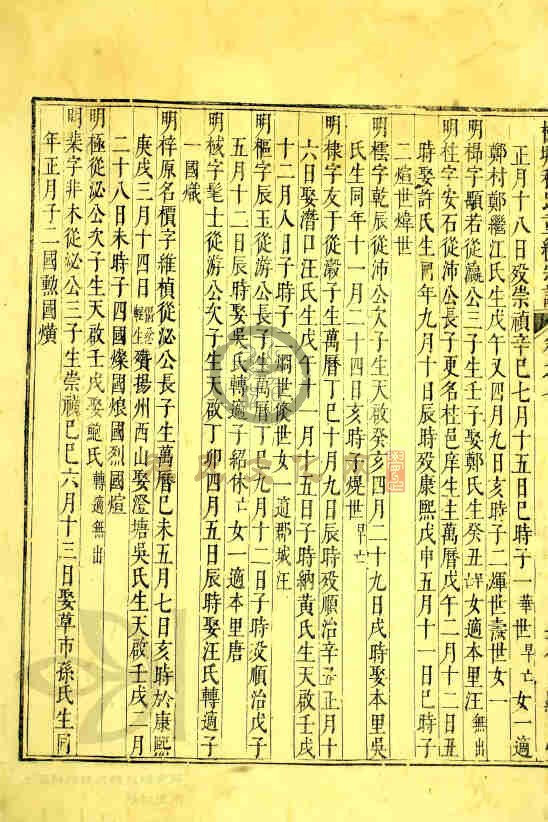 正月十八日歿崇禎辛巳七月十五日巳時子一華世早亡女一適
鄭村鄭繼江氏生戊午又四月九日亥時子二渾世壽世女一
明楊字顯若從瀛公三子生壬子娶鄭氏生癸丑 女適本里汪無出
明柱字安石從沛公長子更名桂邑庠生生萬曆戊午二月十二日丑
時娶許氏生同年九月十日辰時歿康熙戊申五月十一日巳時子
二焰世煒世
明檽字乾辰從沛公次子生天啟癸亥四月二十九日戌時娶本里吳
氏生同年十一月二十四日亥時子熀世早亡
明棣字友于從瀔子生萬曆丁巳十月九日辰時歿順治辛丑正月十
六日娶潛口汪氏生戊午十一月十五日子時納黃氏生天啟壬戌
十二月八日子時子二爛世俊世女一適郡城汪
明樞字辰玉從游公長子生萬曆丁巳九月十二日子時歿順治戊子
五月十二日辰時娶吳氏轉適子紹休亡女一適本里唐
明棫字髦士從游公次子生天啟丁卯四月五日辰時娶汪氏轉適子
一國熾
明梓原名檟字維楨從泌公長子生萬曆己未五月七日亥時於康熙
庚戌三月十四日 殯揚州西山娶澄塘吳氏生天啟壬戌二月
二十八日未時子四國燦國烺國烈國煊
明極從泌公次子生天啟壬戌娶鮑氏轉適無出
明棐字非木從泌公三子生崇禎己巳六月十三日娶草市孫氏生同
年正月子二國勲國熿